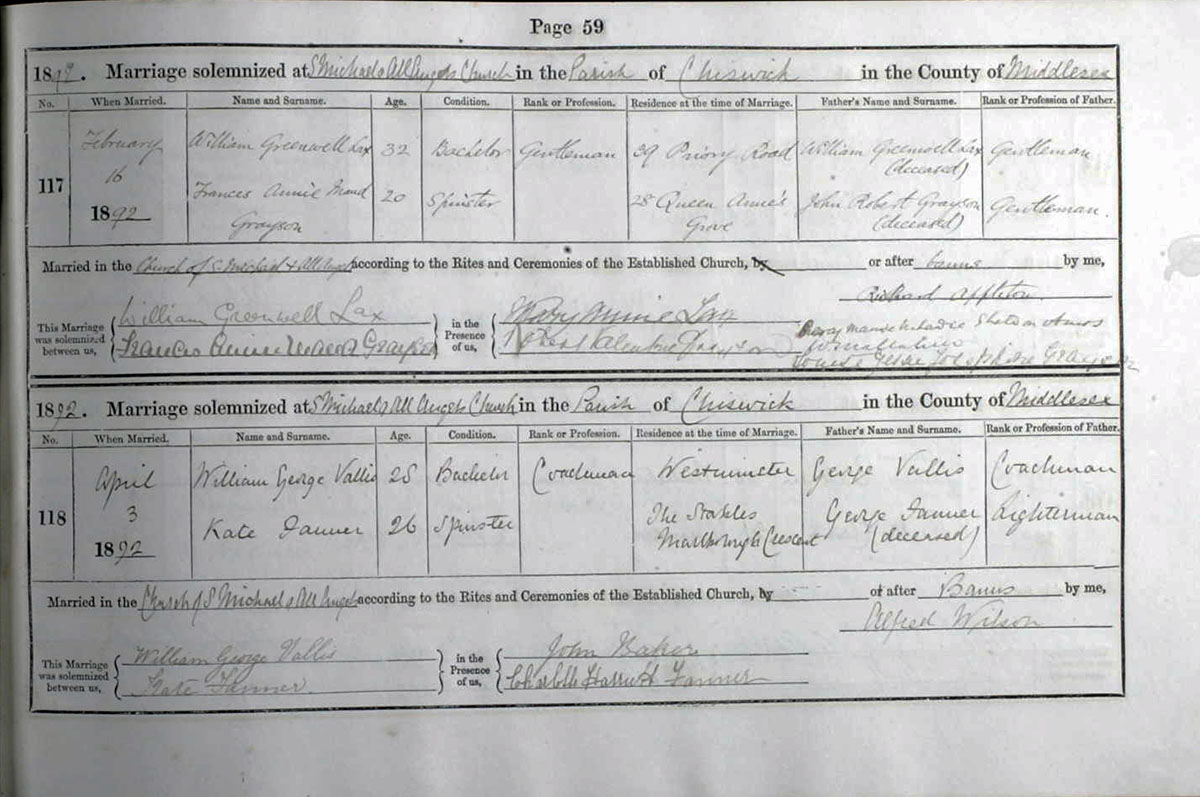 Page 59
1892. Marriage solemnized at S Michael & All Angels Church in the Parish of Chiswick in the County of Middlesex
No. When Married. Name and Surname. Age. Condition. Rank or Profession. Residence at the time of Marriage. Father's Name and Surname. Rank or Profession of Father.
117 February 16 1892 William Greenwell Lax 32 Bachelor Gentleman 39 Priory Road William Greenwell Lax (deceased) Gentleman
Frances Annie Maud Grayson 20 Spinster 28 Queen Anne's Grove John Robert Grayson (deceased) Gentleman.
Married in the Church of S Michael & All Angels according to the Rites and Ceremonies of the Established Church, by or after banns by me,
Richard Appleton.
This Marriage was solemnized between us, William Greenwell Lax in the Presence of us, Lax
Frances Annie Maud Grayson Robert Valentine Grayson
1892. Marriage solemnized at S Michael & All Angels Church in the Parish of Chiswick in the County of Middlesex
No. When Married. Name and Surname. Age. Condition. Rank or Profession. Residence at the time of Marriage. Father's Name and Surname. Rank or Profession of Father.
118 April 3 1892 William George Vallis 25 Bachelor Coachman Westminster George Vallis Coachman
Kate Fanner 26 Spinster The Stables Marlborough Crescent George Fanner (deceased) Lighterman
Married in the Church of S Michael & All Angels according to the Rites and Ceremonies of the Established Church, by or after Banns by me,
Alfred Wilson
This Marriage was solemnized between us, William George Vallis in the Presence of us, John Baker
Kate Fanner Charlotte Harriett Fanner